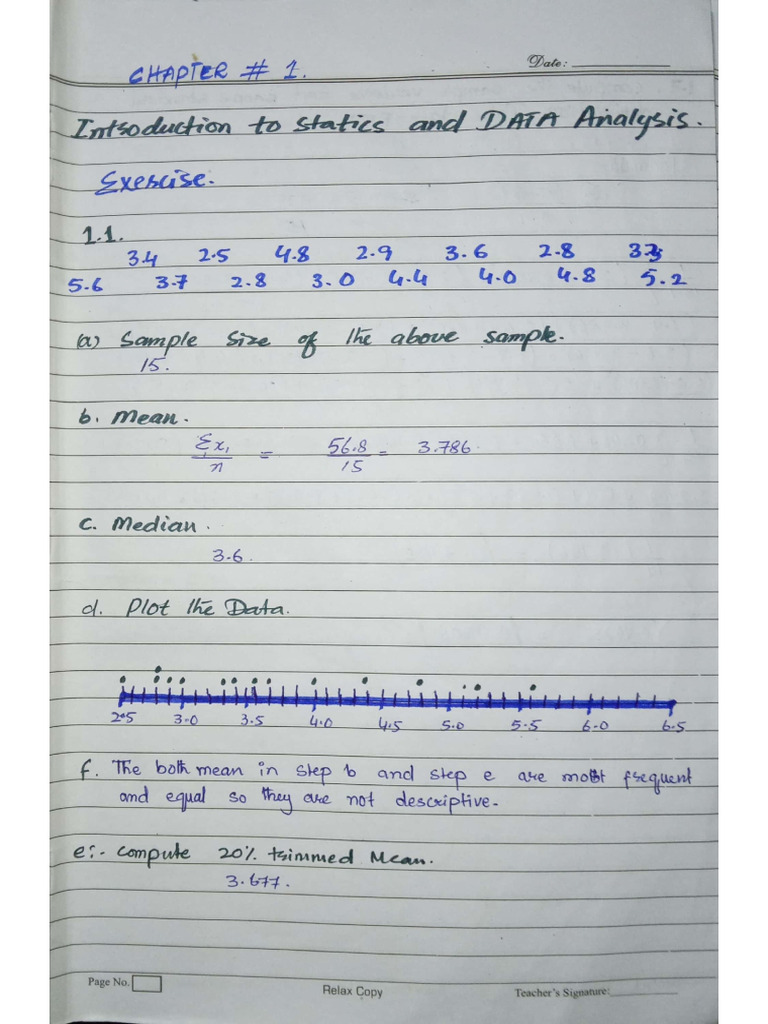 CHAPTER # 1.
Date:
Intsoduction to statics and DATA Analysis.
Exescise.
1.1.
3.4 2.5 4.8 2.9 3.6 2.8
5.6 3.7 2.8 3.0 4.4 4.0 4.8 5.2
(a) Sample Size of the above sample.
15.
b. Mean.
Σx₁/n = 56.8/15 = 3.786.
c. Median.
3.6.
d. Plot the Data.
2.5 3.0 3.5 4.0 4.5 5.0 5.5 6.0 6.5
f. The both mean in step b and step e are most frequent
and equal so they are not descriptive.
e:- compute 20% tsimmed Mean.
3.677.
Page No.
Relax Copy
Teacher's Signature: